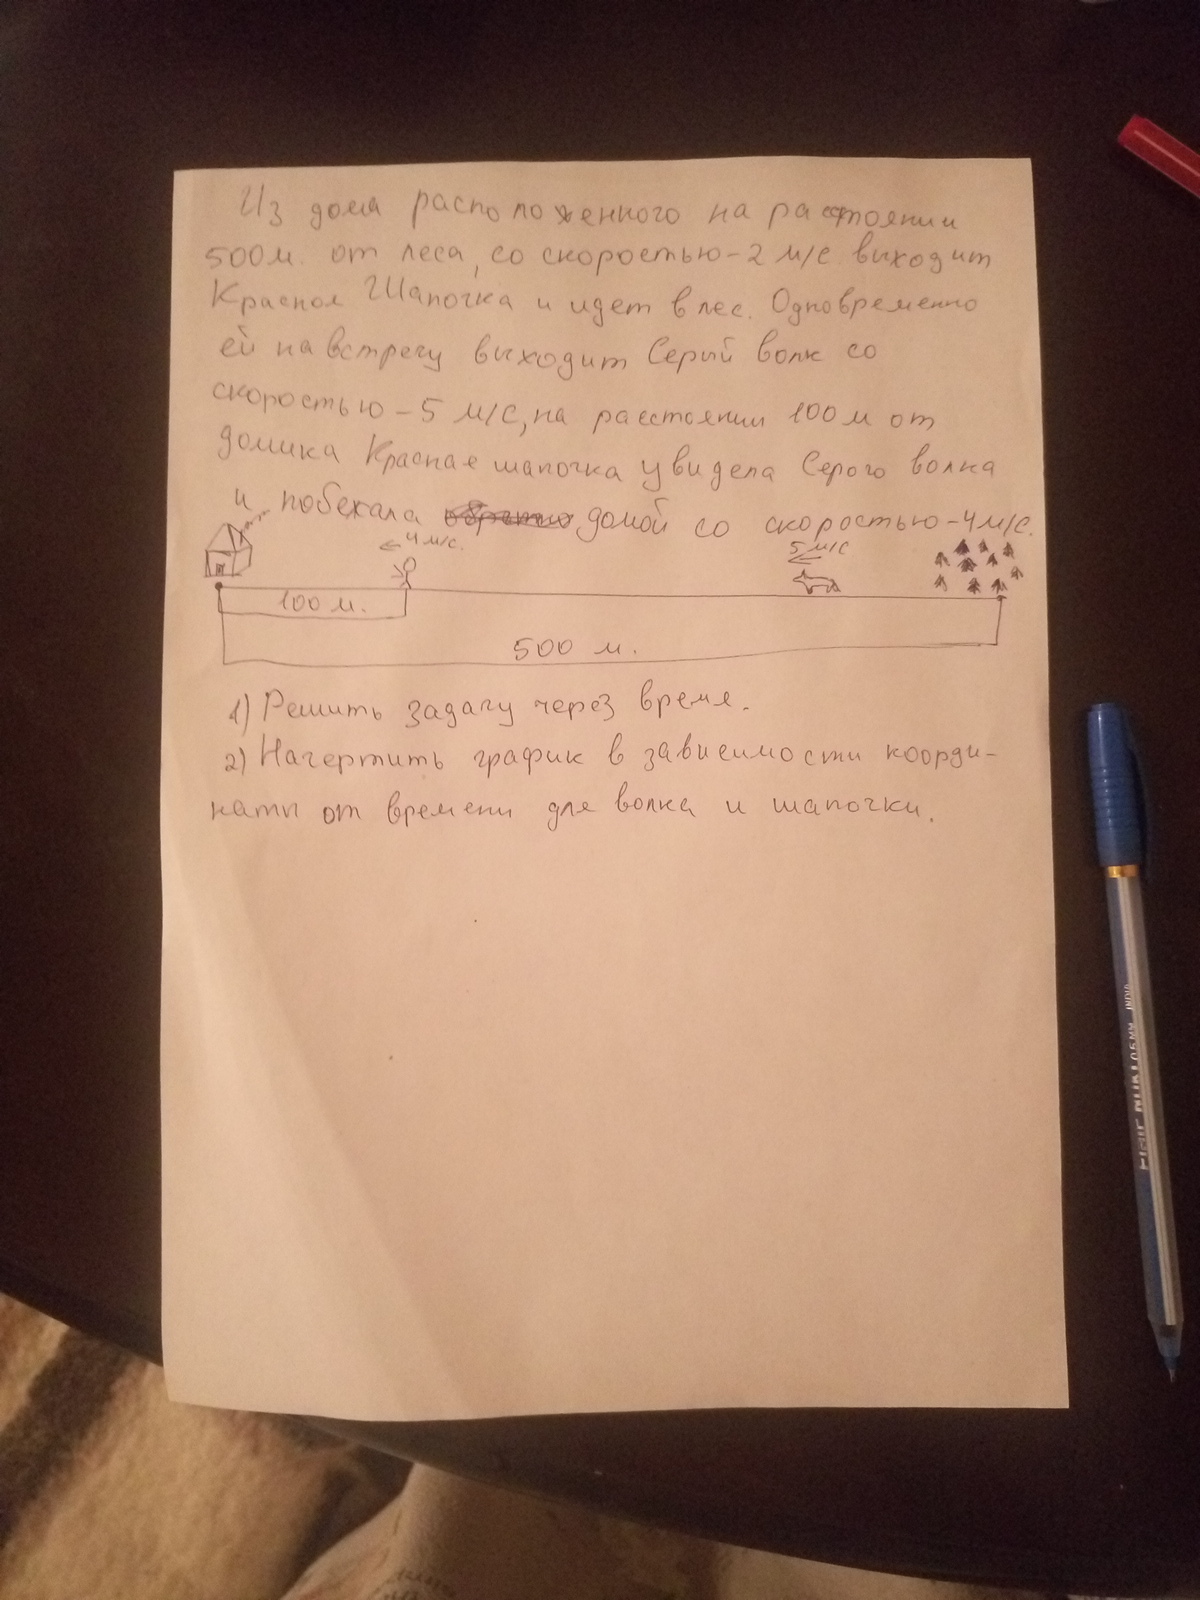 Из дома расположенного на расстоянии
500м. от леса, со скоростью-2 м/с выходит
Красная Шапочка и идет в лес. Одновременно
ей на встречу выходит Серый волк со
скоростью-5 м/с, на расстоянии 100м от
домика Красная шапочка увидела Серого волка
и побежала домой со скоростью-4м/с.
4 м/с.
5 м/с
100 м.
500 м.
1) Решить задачу через время.
2) Начертить график в зависимости коорди-
наты от времени для волка и шапочки.